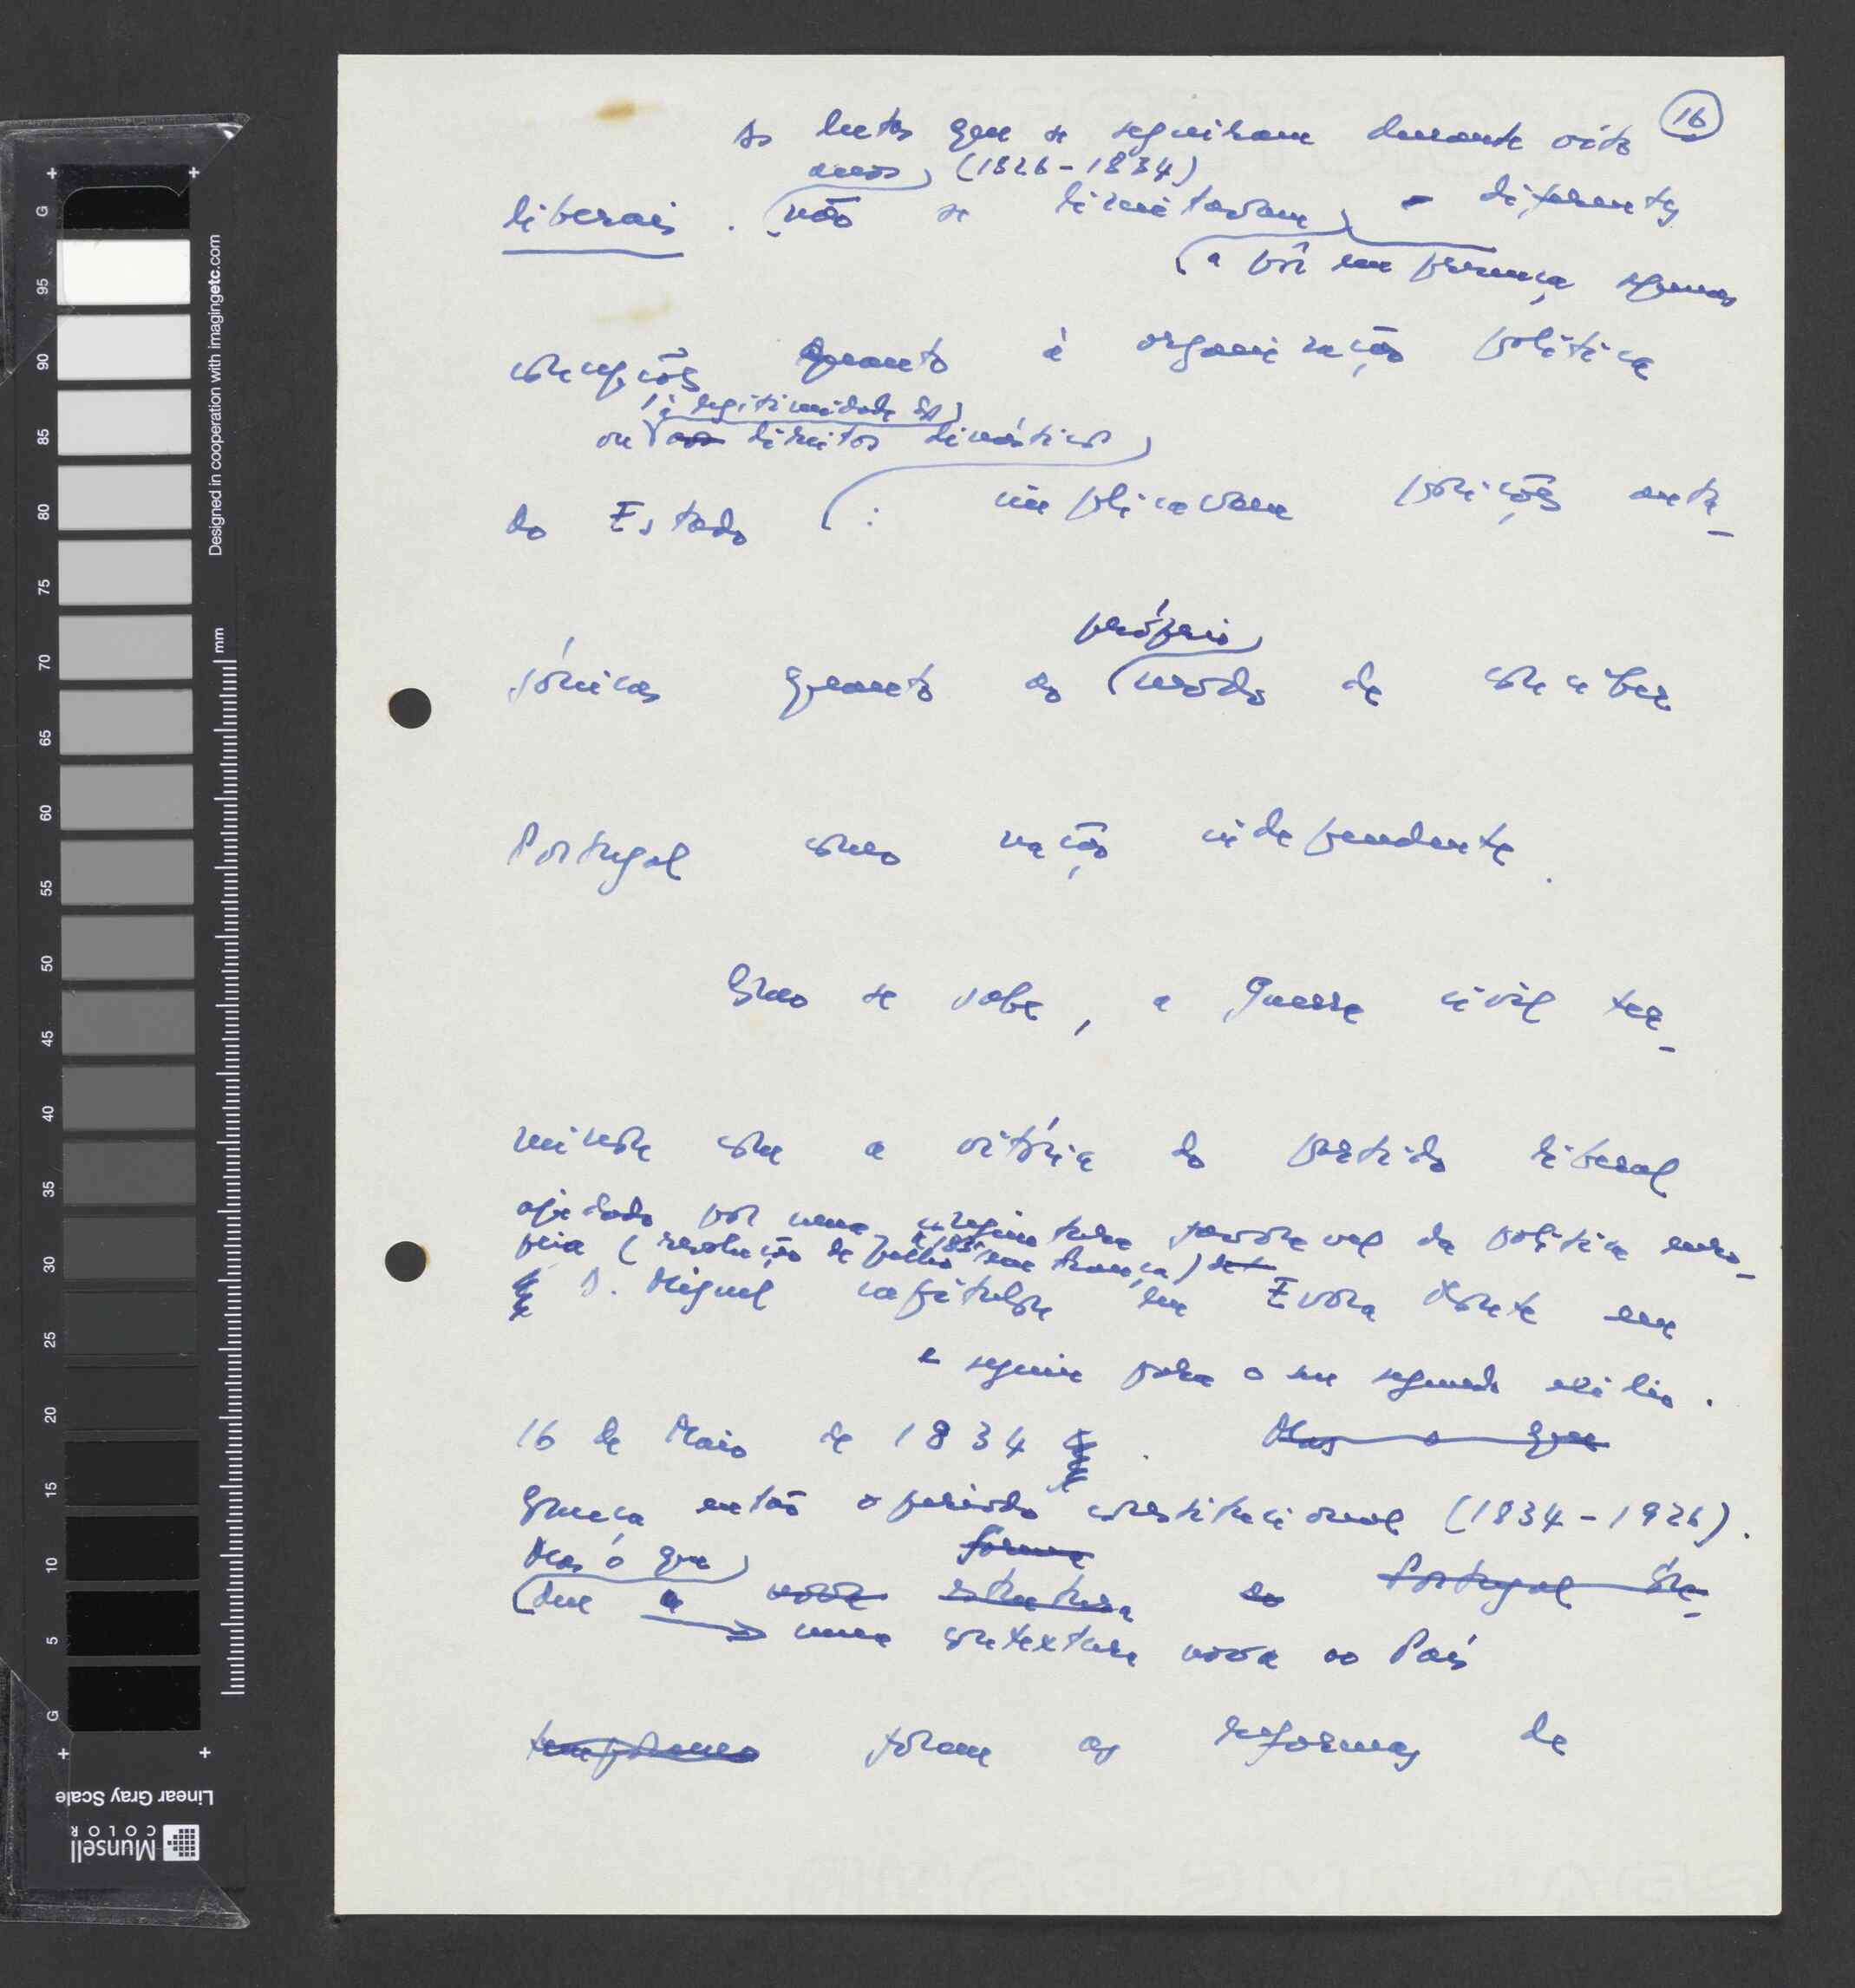 16
As lutas que se seguiram durante oito
anos, (1826-1834)
liberais. não se limitavam a diferentes
a pôr em presença
concepções quanto à organização política
à legitimidade de
ou aos direitos dinásticos
do Estado : implicavam posições anta-
gónicas quanto ao modo de conceber
próprio
Portugal como nação independente.
Como se sabe, a guerra civil ter-
minou com a vitória do partido liberal
ajudado por uma conjuntura favorável da política euro-
peia (revolução de Julho 1830 em França)
e D. Miguel capitulou em Evora Monte em
e seguiu para o seu segundo exílio.
16 de Maio de 1834 . Mas o que
Começa então o período constitucional (1834-1926).
Mas o que forma
deu a nova estrutura ao Portugal Con-
uma contextura nova ao País
temporâneo foram as reformas de
G
95
90
85
80
75
70
65
60
55
50
45
40
35
30
25
20
15
10
5
G
mm
Designed in cooperation with imagingetc.com
Linear Gray Scale
Munsell
COLOR